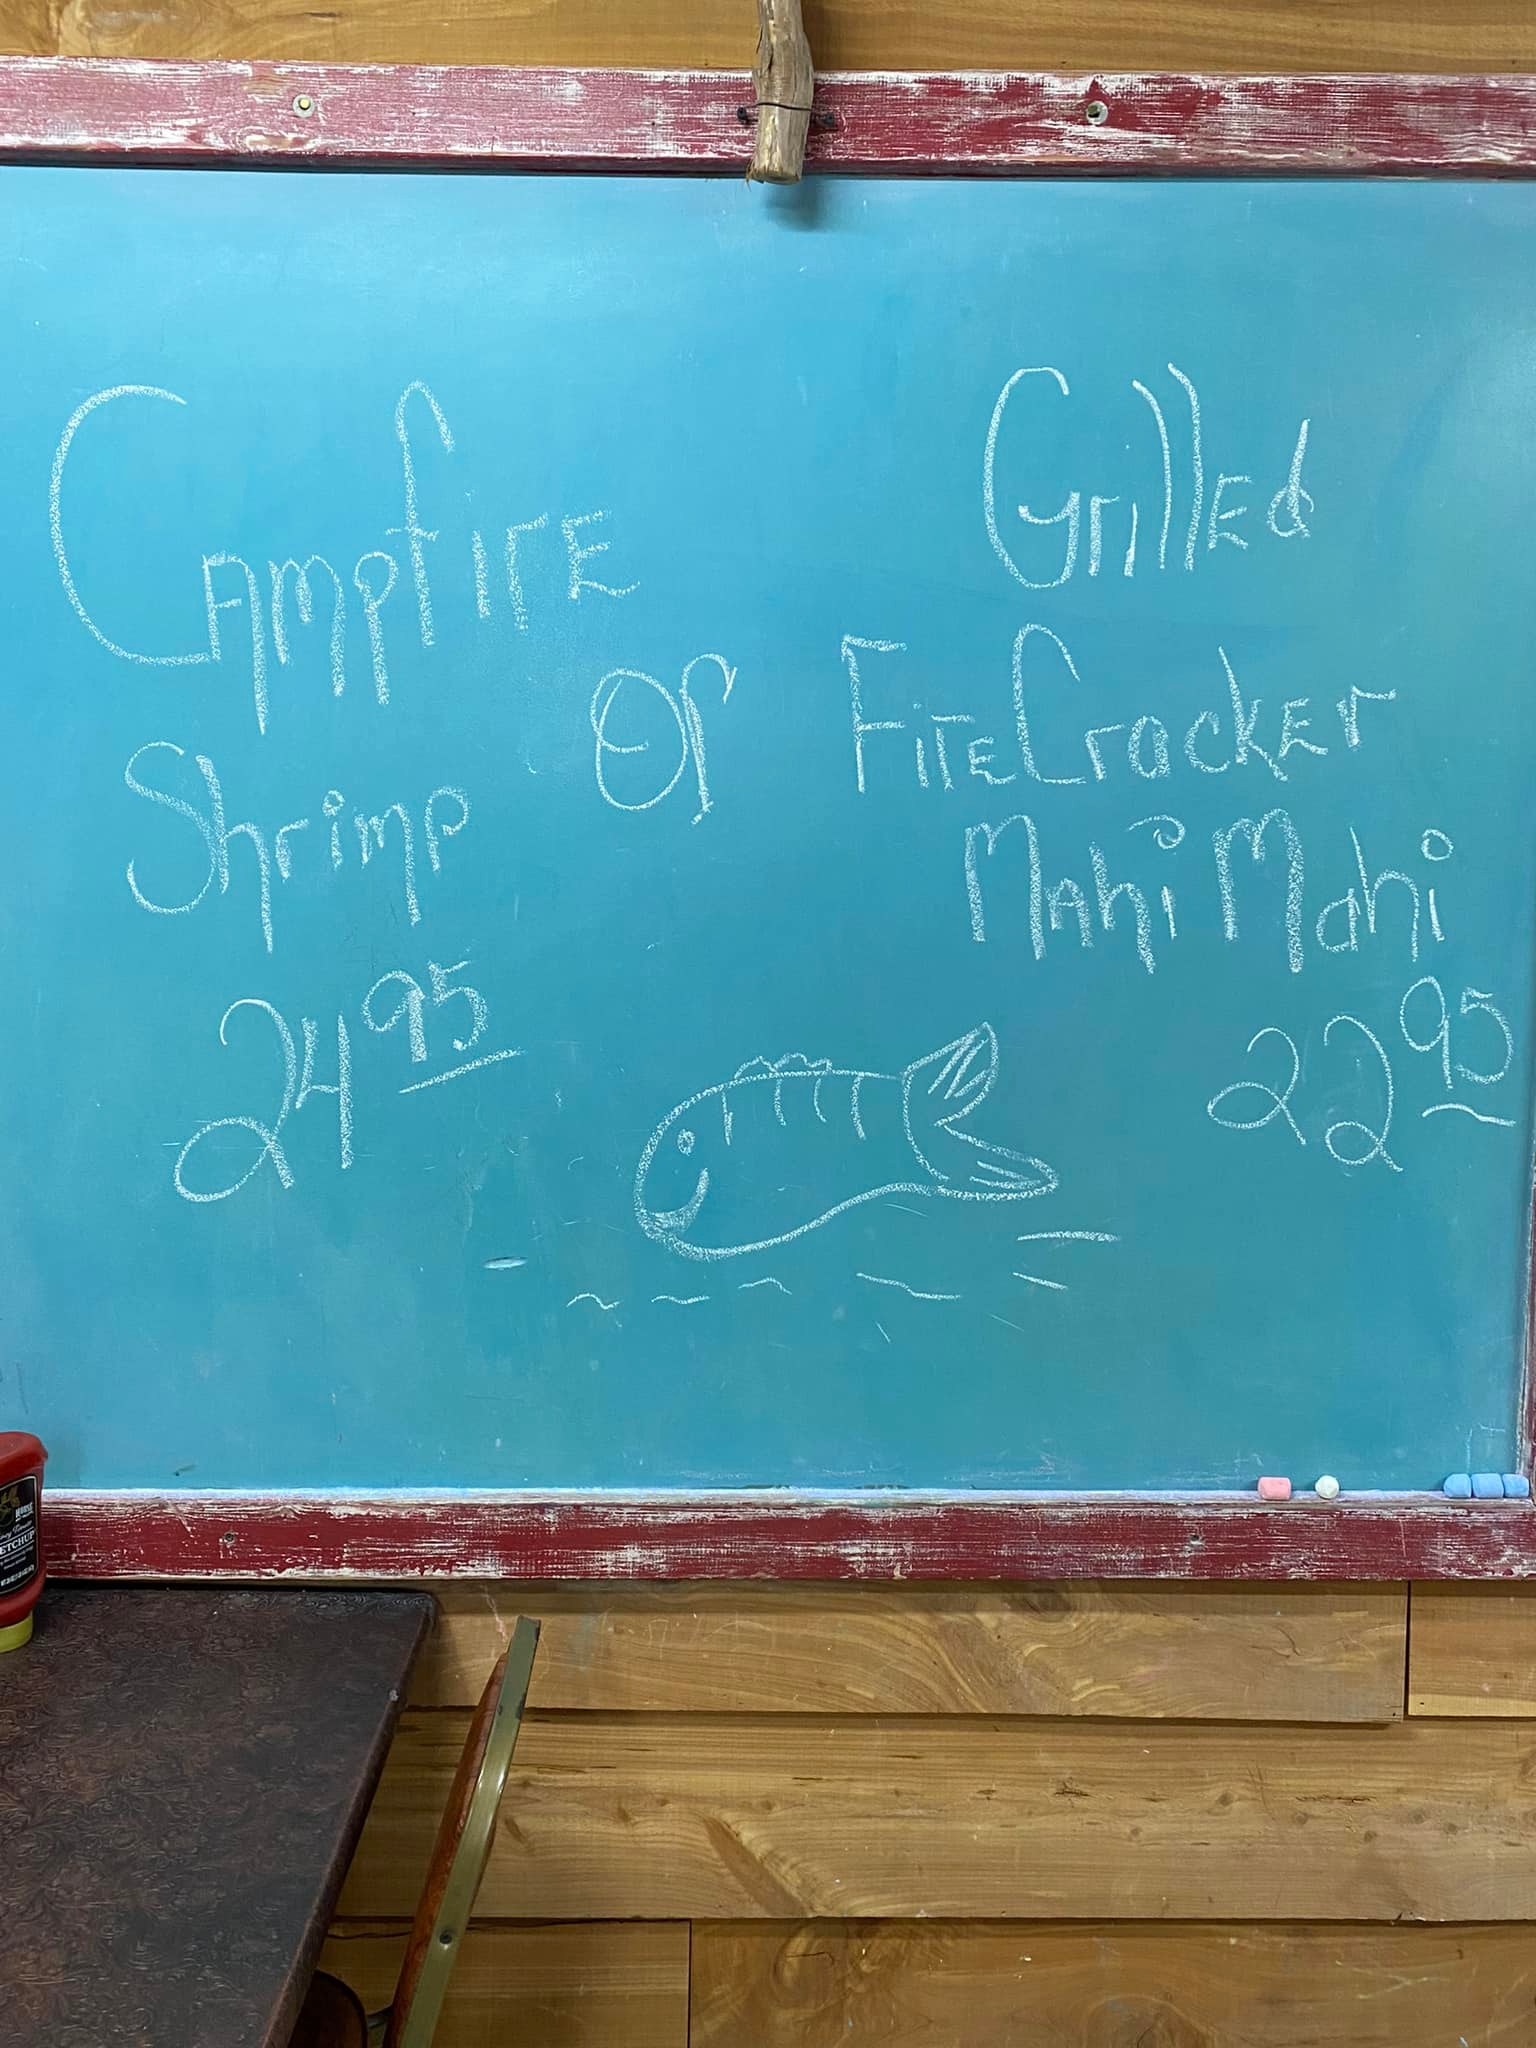 Campfire
Shrimp
24 95
Or
Grilled
FireCracker
Mahi Mahi
22 95
HOUSE
Fancy Tomato
KETCHUP